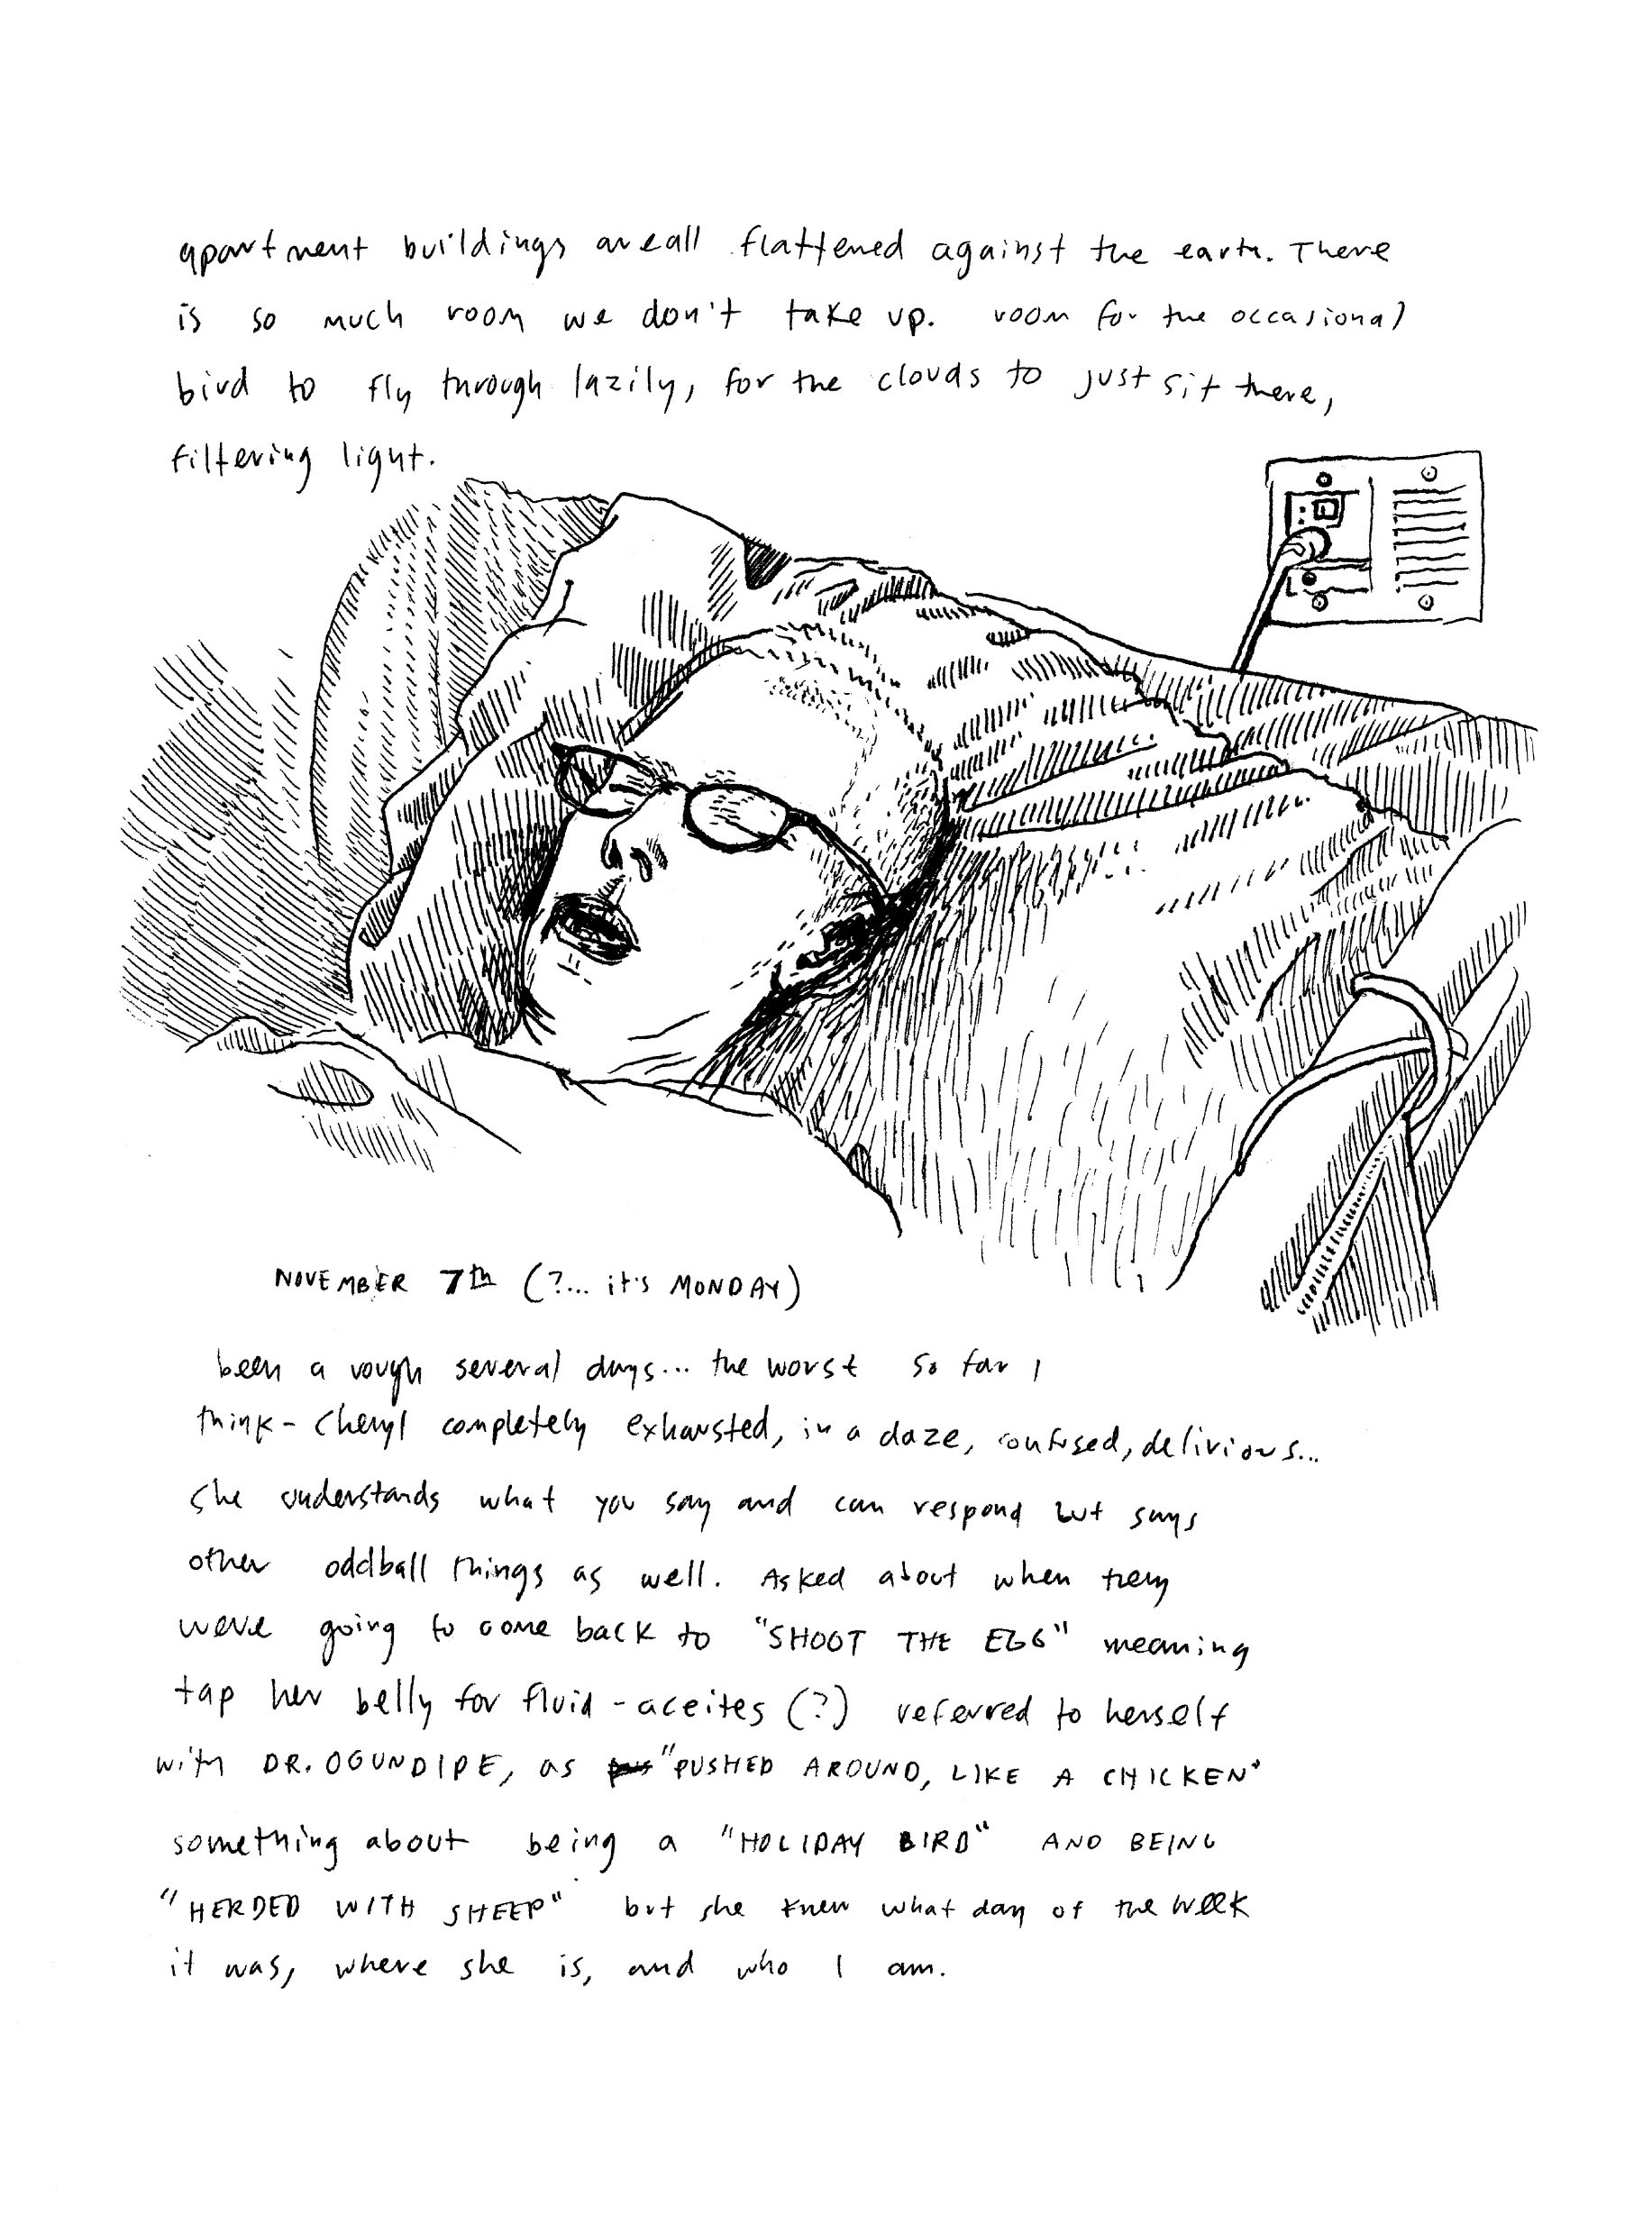 apartment buildings are all flattened against the earth. There
is so much room we don't take up. room for the occasional
bird to fly through lazily, for the clouds to just sit there,
filtering light.
NOVEMBER 7th (?... it's MONDAY)
been a rough several days... the worst so far I
think - Cheryl completely exhausted, in a daze, confused, delirious...
She understands what you say and can respond but says
other oddball things as well. Asked about when they
were going to come back to "SHOOT THE EGG" meaning
tap her belly for fluid - aceites (?) referred to herself
with DR. OGUNDIPE, as "PUSHED AROUND, LIKE A CHICKEN"
something about being a "HOLIDAY BIRD" AND BEING
"HERDED WITH SHEEP" but she knew what day of the week
it was, where she is, and who I am.